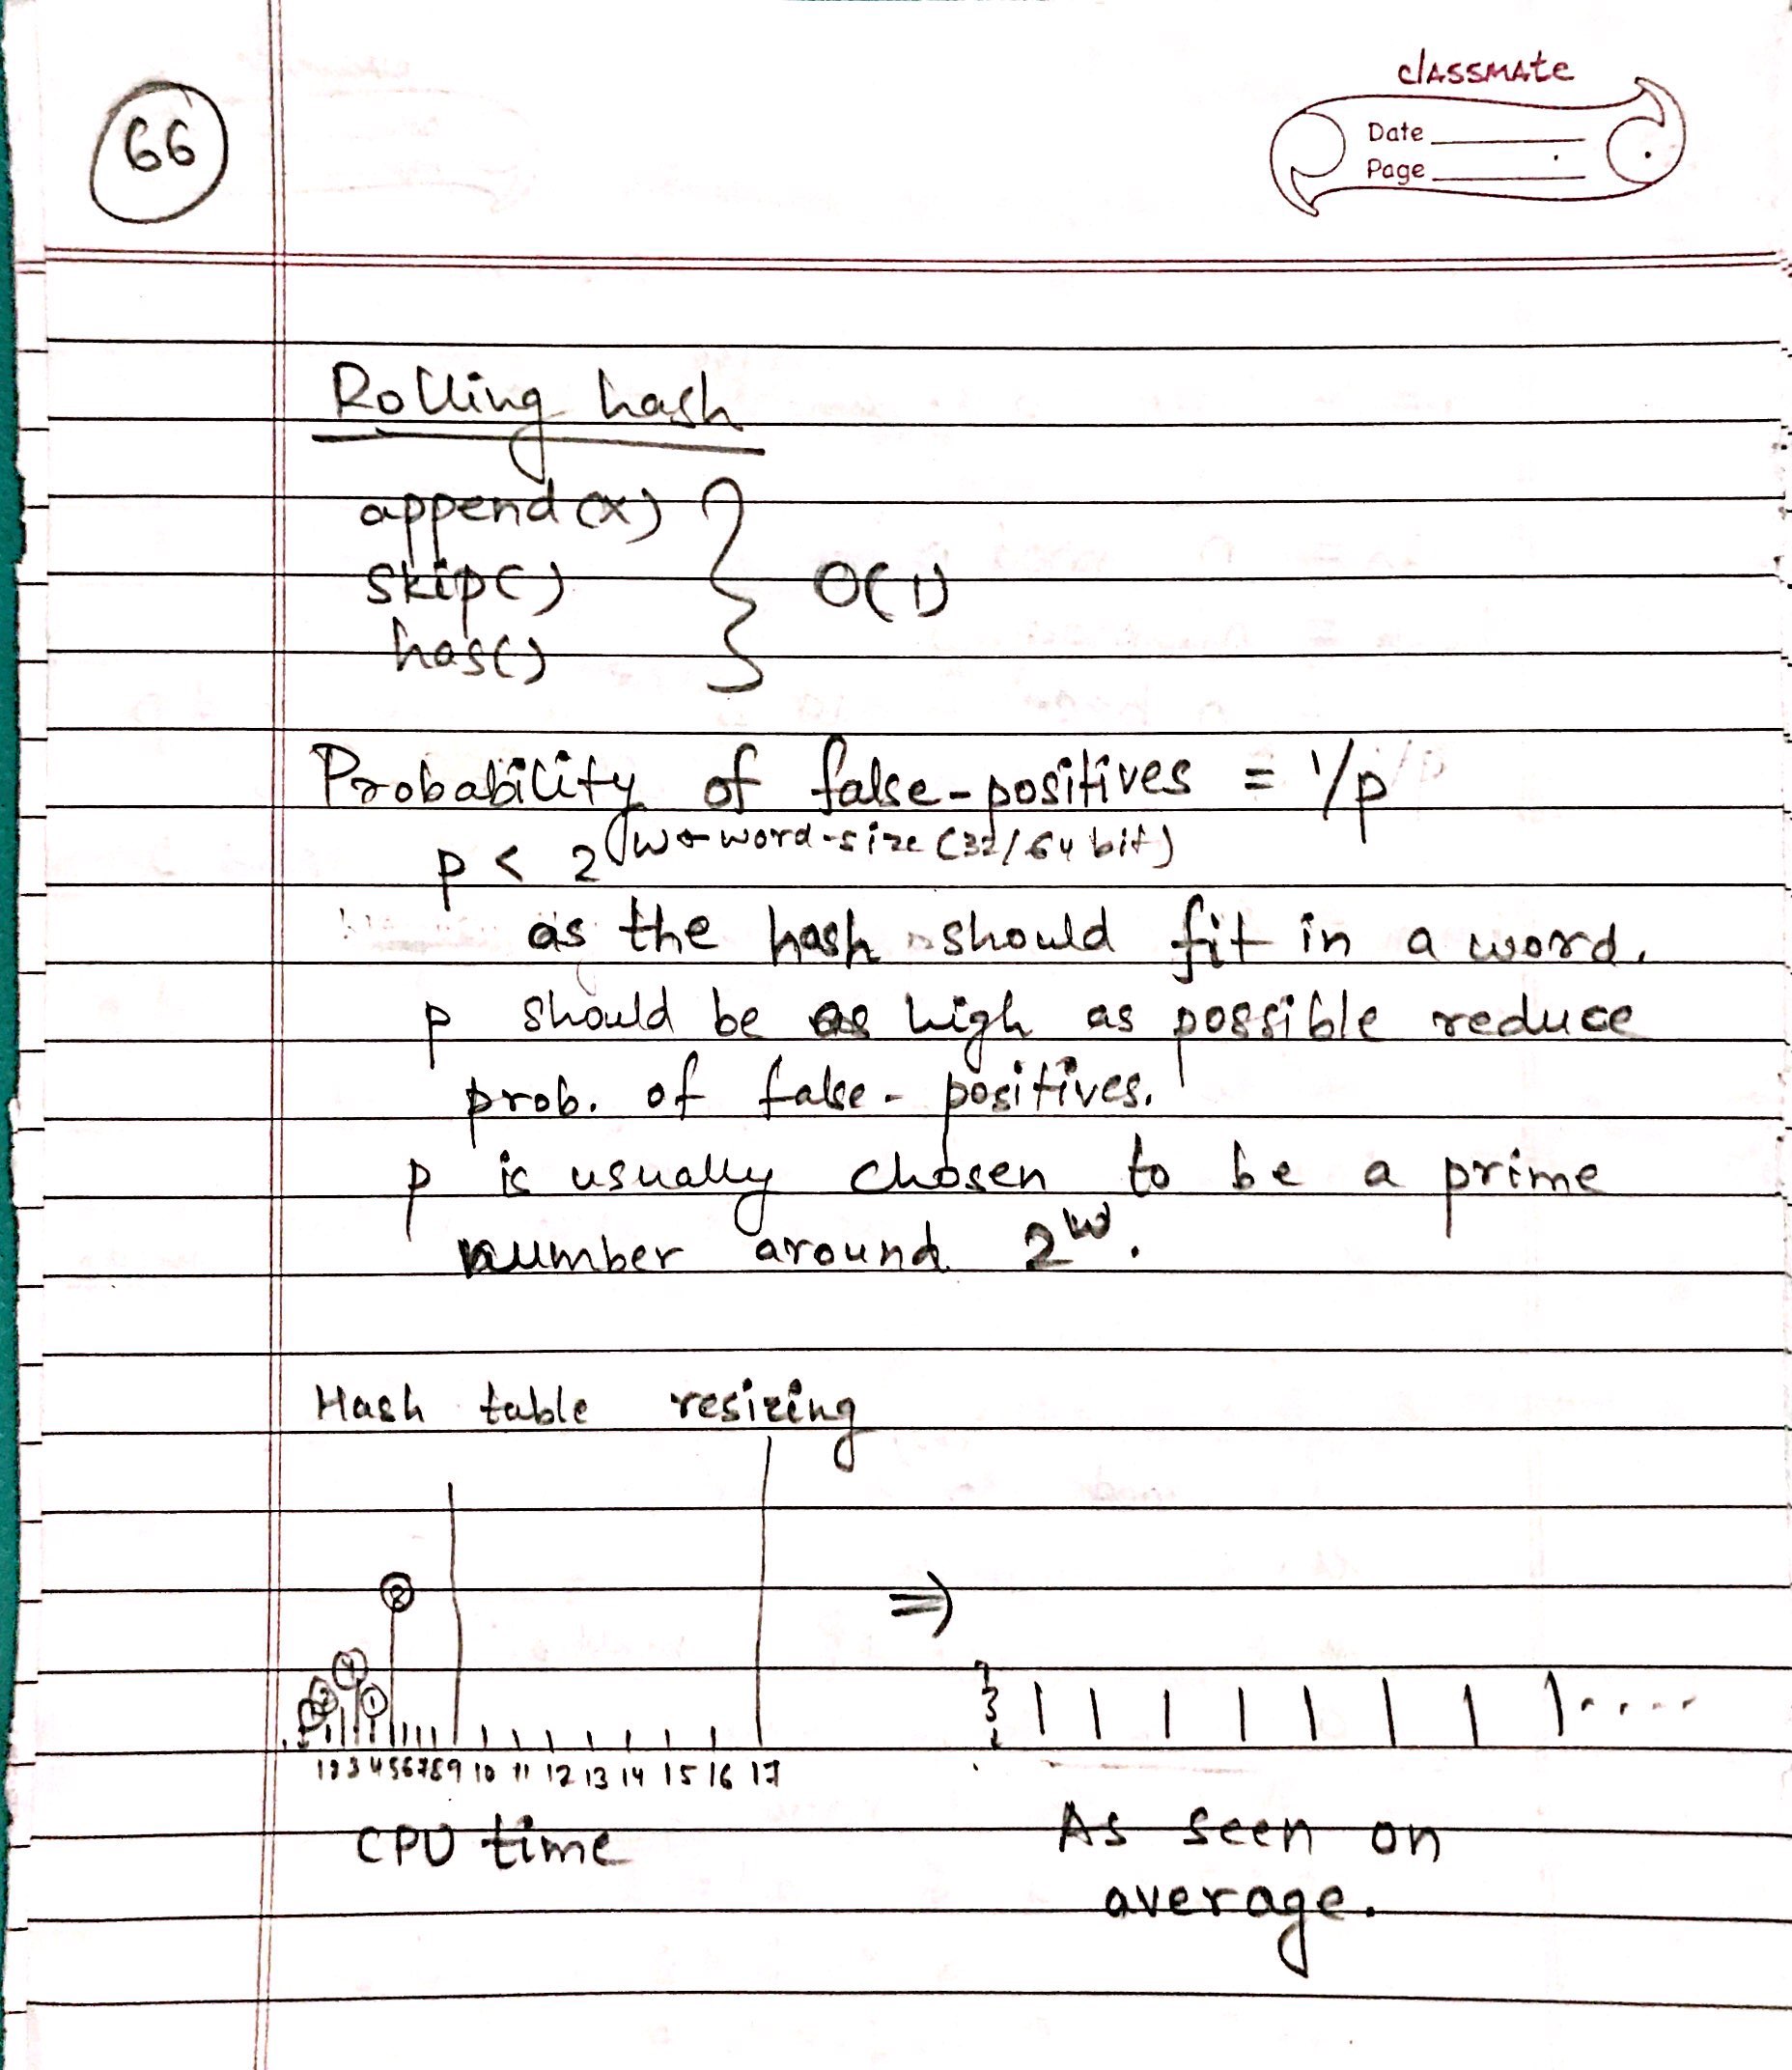 66
classmate
Date
Page
Rolling hash
append(x)
skip() } O(1)
has()
Probability of false-positives = 1/p
p < 2^w ← word-size (32/64 bit)
as the hash should fit in a word.
p should be as high as possible reduce
prob. of false-positives.
p is usually chosen to be a prime
number around 2^w.
Hash table resizing
8
4
1
⇒
3
1 2 3 4 5 6 7 8 9 10 11 12 13 14 15 16 17
CPU time
As seen on
average.